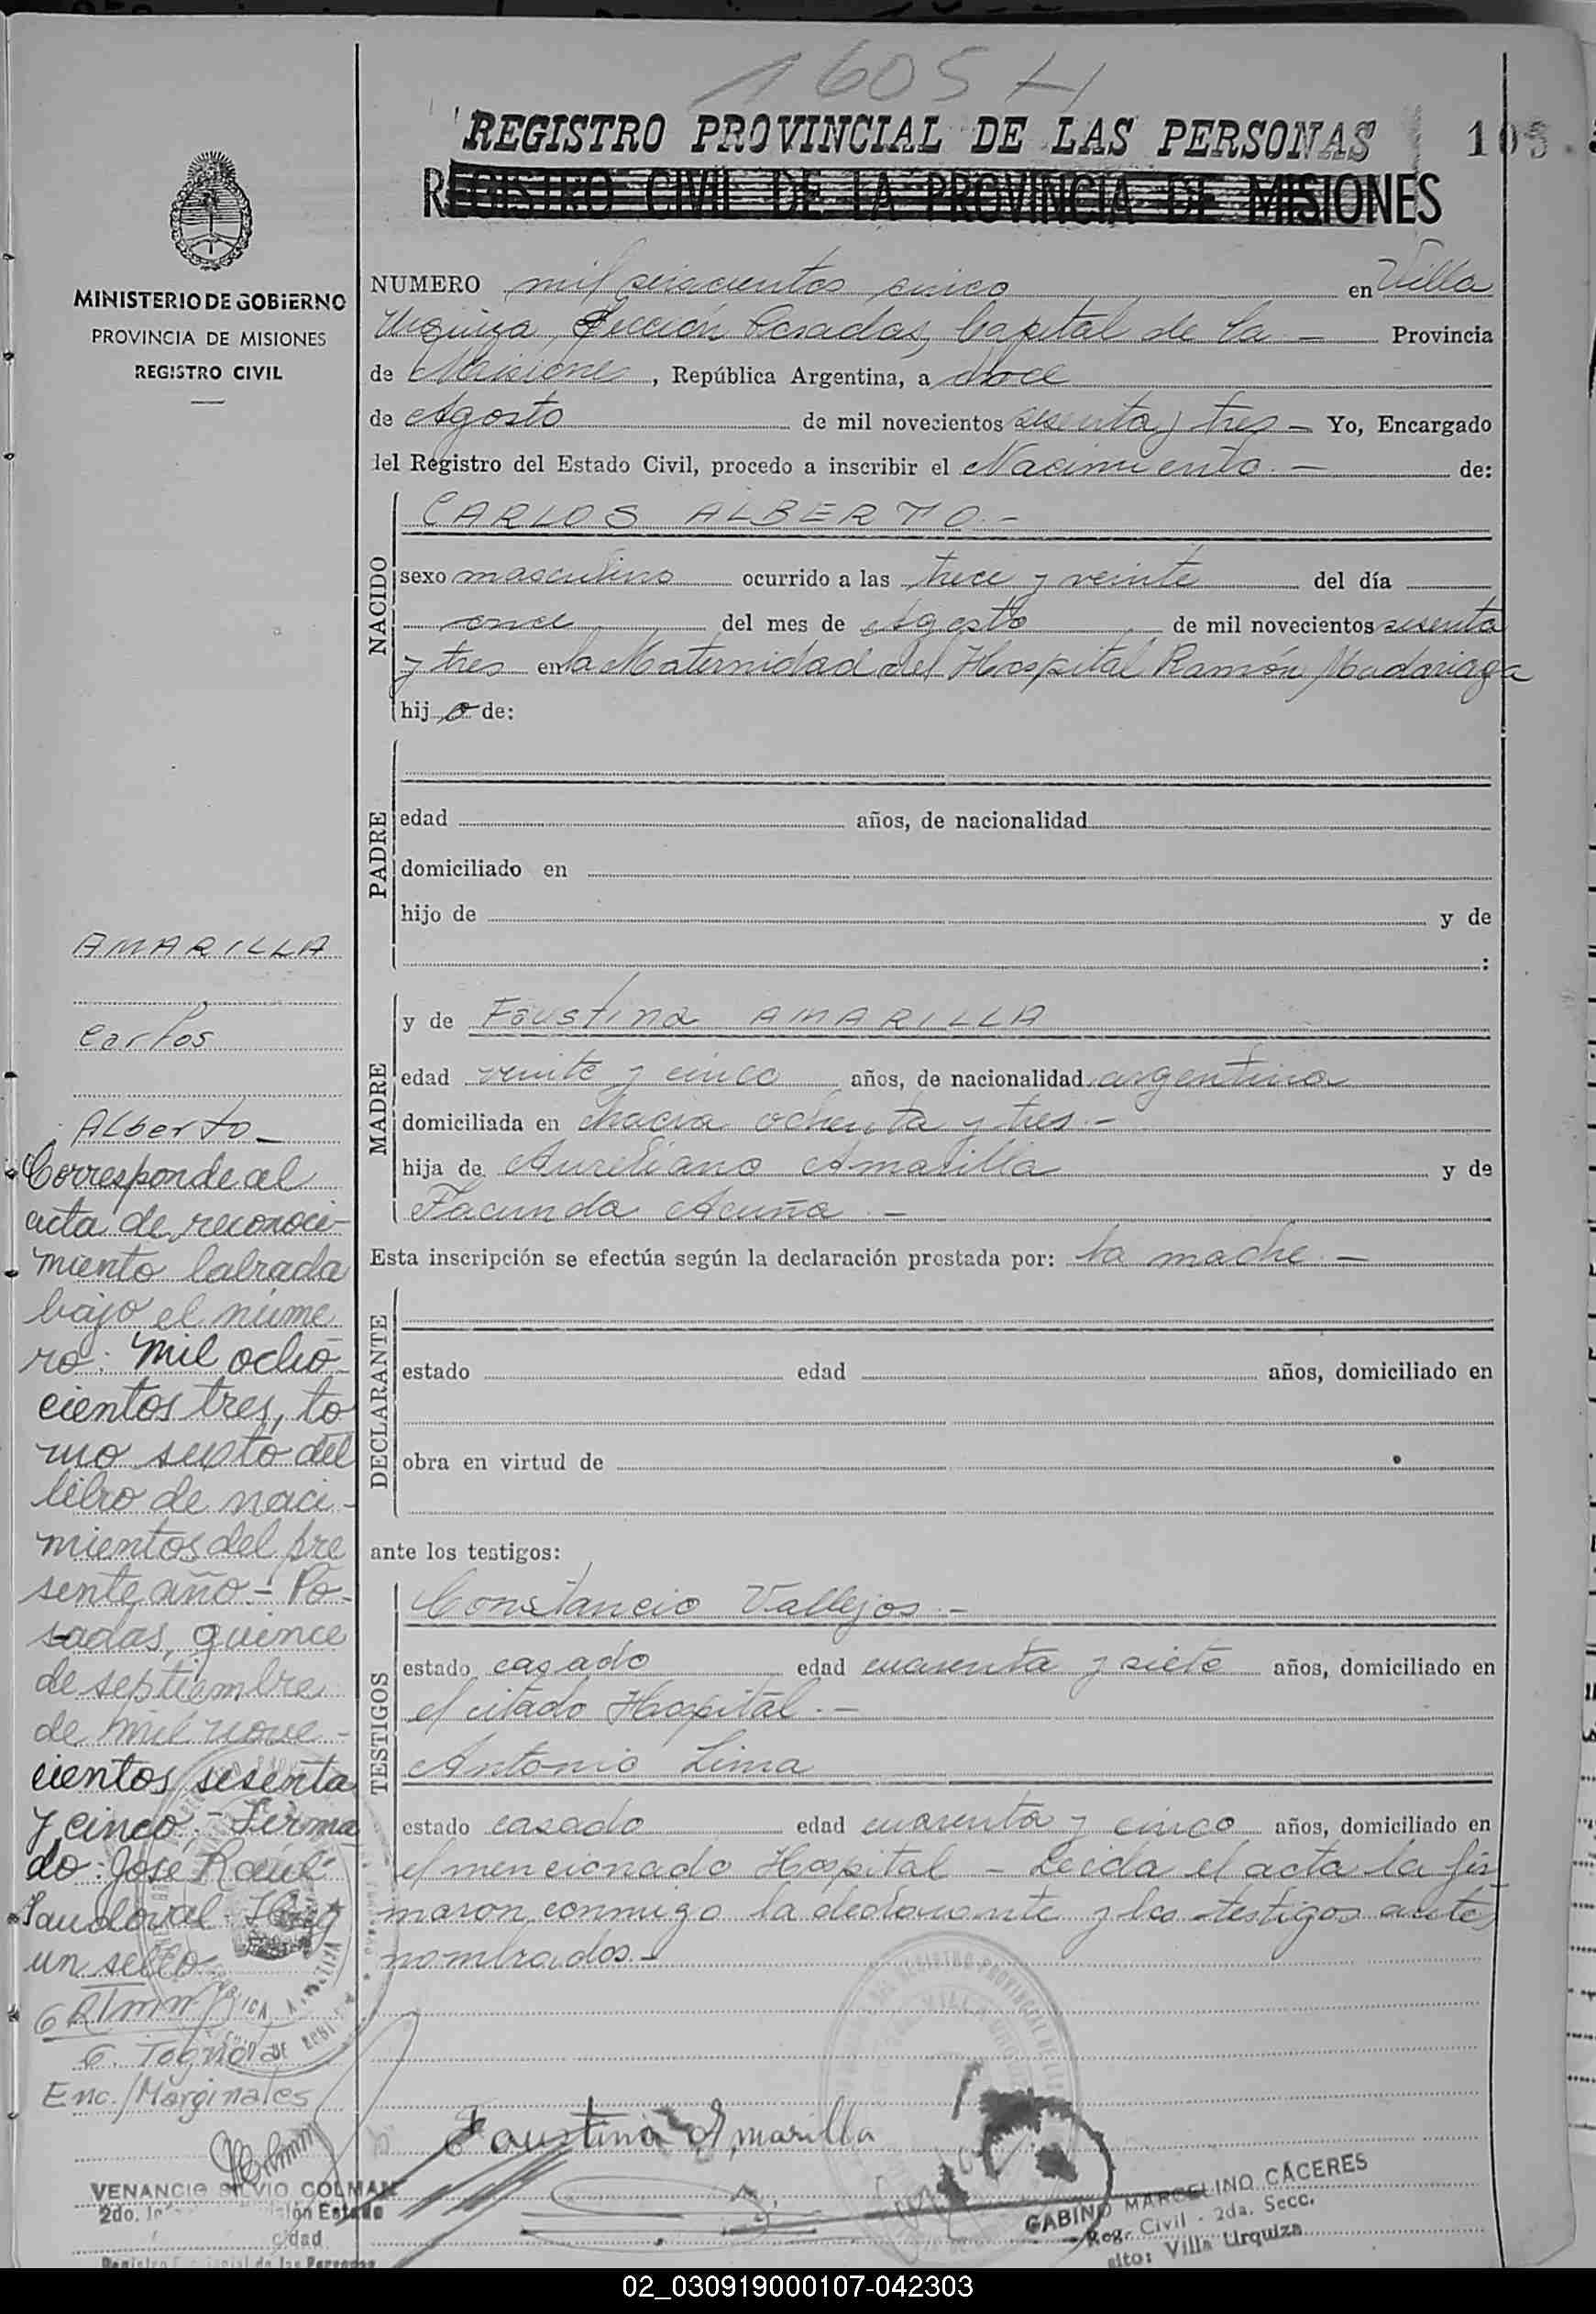 1605 H
REGISTRO PROVINCIAL DE LAS PERSONAS
REGISTRO CIVIL DE LA PROVINCIA DE MISIONES
MINISTERIO DE GOBIERNO
PROVINCIA DE MISIONES
REGISTRO CIVIL
NUMERO mil seiscientos cinco en Villa
Urquiza, Sección Posadas, Capital de la - Provincia
de Misiones, República Argentina, a doce
de Agosto de mil novecientos sesenta y tres - Yo, Encargado
del Registro del Estado Civil, procedo a inscribir el Nacimiento - de:
NACIDO
CARLOS ALBERTO.-
sexo masculino ocurrido a las trece y veinte del día
once del mes de Agosto de mil novecientos sesenta
y tres en la Maternidad del Hospital Ramón Madariaga
hijo de:
PADRE
edad años, de nacionalidad
domiciliado en
hijo de y de
:
MADRE
y de Faustina AMARILLA
edad veinte y cinco años, de nacionalidad argentina
domiciliada en chacra ochenta y tres.-
hija de Aureliano Amarilla y de
Facunda Acuña.-
Esta inscripción se efectúa según la declaración prestada por: la madre.-
DECLARANTE
estado edad años, domiciliado en
obra en virtud de
ante los testigos:
TESTIGOS
Constancio Vallejos.-
estado casado edad cuarenta y siete años, domiciliado en
el citado Hospital.-
Antonio Lima
estado casado edad cuarenta y cinco años, domiciliado en
el mencionado Hospital - Leida el acta la fir
maron conmigo la declarante y los testigos antes
nombrados.-
Faustina Amarilla
GABINO MARCELINO CÁCERES
Reg. Civil - 2da. Secc.
Villa Urquiza
AMARILLA
Carlos
Alberto-
Corresponde al
acta de reconoci-
miento labrada
bajo el núme
ro: mil ocho-
cientos tres, to
mo sexto del
libro de naci-
mientos del pre
sente año.- Po-
sadas, quince
de septiembre
de mil nove-
cientos sesenta
y cinco.- Firma
do: José Raúl
Sandoval. Hay
un sello
Enc./Marginales
VENANCIO SILVIO COLMAN
2do.
02_030919000107-042303